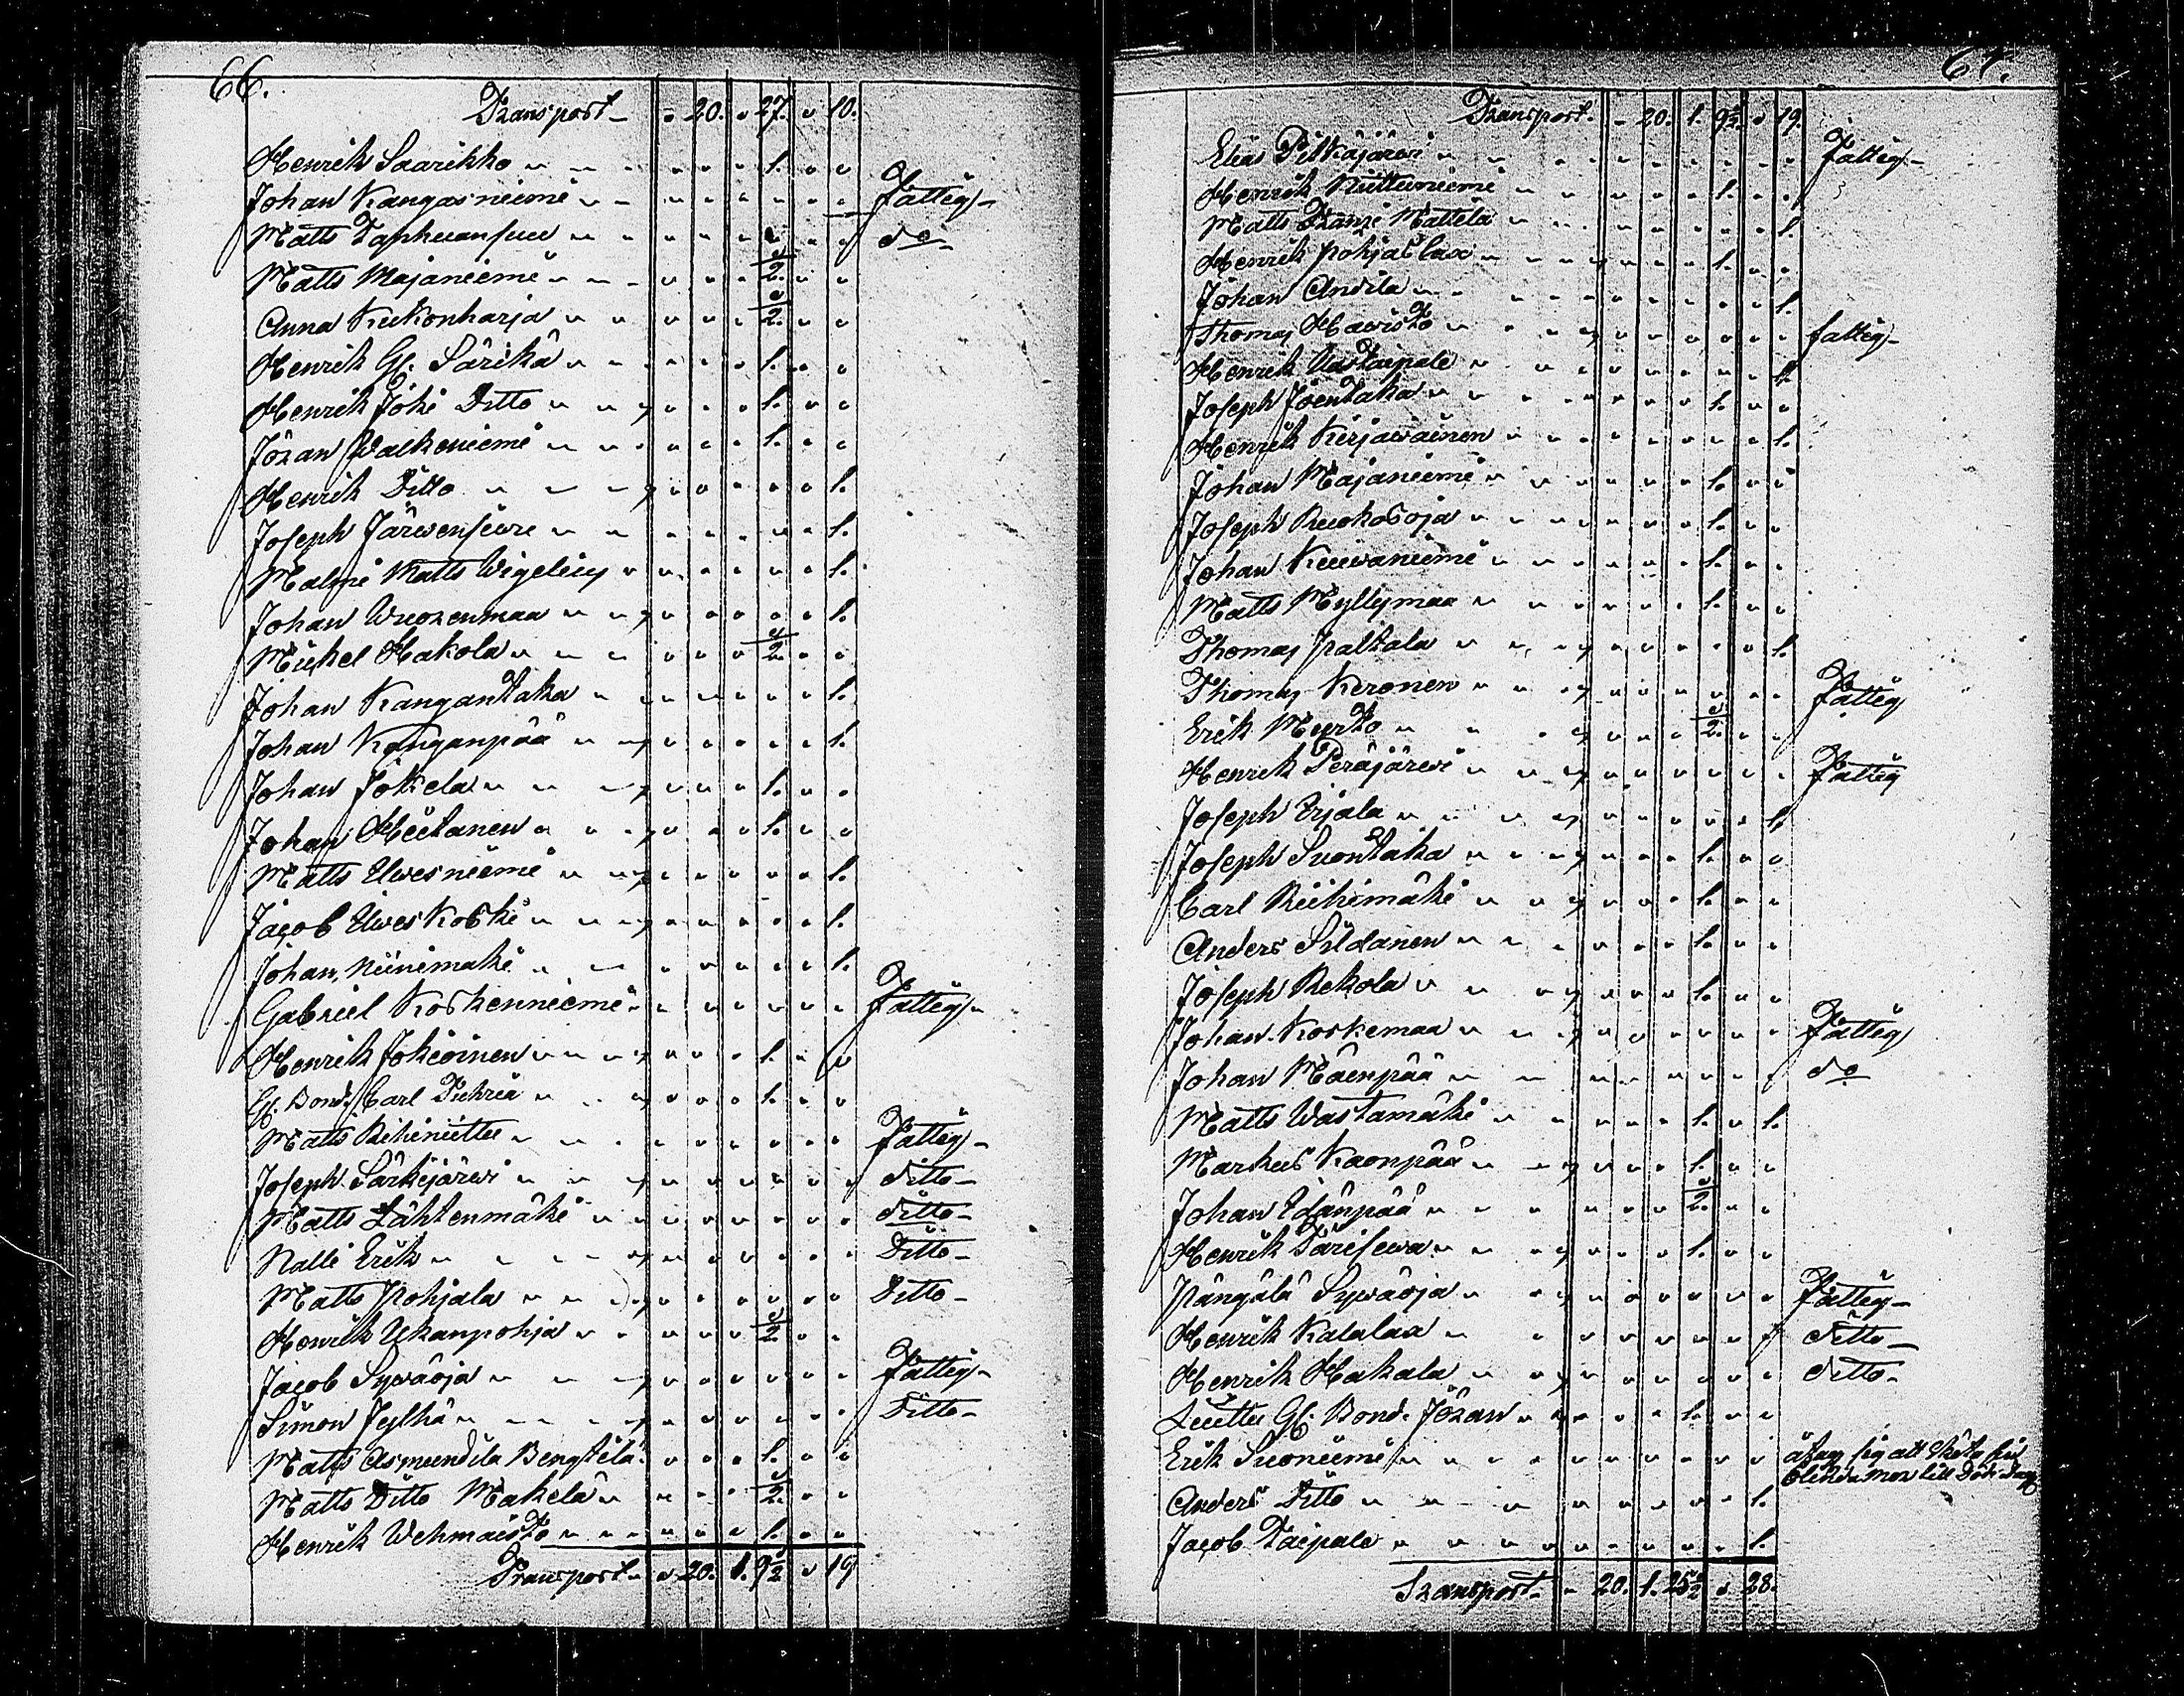 66.
Transport - 20. " 27. " 10.
Henrik Saarikko 1.
Johan Kangasniemi Fattig
Matts do
Matts Majaniemi ½.
Anna Kukonharja ½.
Henrik Gl. Särikä 1.
Henrik Joki Ditto 1.
Jöran Walkeniemi 1.
Henrik Ditto 1.
Joseph Järwensuu 1.
Malmi Matts Wigelius 1.
Johan Wuorenmaa 1.
Michel Hakola ½.
Johan Kangantaka 1.
Johan Kanganpää 1.
Johan Jokela 1.
Johan Hietanen 1.
Matts Ilwesniemi 1.
Jacob Ilweskoski 1.
Johan Niinimäki 1.
Gabriel Koskenniemi Fattig
Henrik Jokioinen 1.
Gl. Bond. Carl 1.
Matts Fattig
Joseph Särkijärwi ditto
Matts Lähtenmäki ditto
Nalli Erik Ditto
Matts Pohjala Ditto
Henrik Ukanpohja ½.
Jacob Sywäoja Fattig
Simon Jylhä Ditto
Matts Asmundila Bengtilä 1.
Matts Ditto Makela ½.
Henrik Wehmaisto 1.
Transport " 20. 1. 9½ " 19
67.
Transport. - 20. 1. 9½. " 19.
Elias Pitkäjärwi Fattig
Henrik Niittuniemi 1.
Matts Mattila 1.
Henrik Pohjaslax 1.
Johan Andila 1.
Thomas Hawisto fattig
Henrik Wastaipale 1.
Joseph Joentaka 1.
Henrik Kirjawainen 1.
Johan Majaniemi 1.
Joseph Ruokosoja 1.
Johan Kuiwaniemi 1.
Matts Myllymaa 1.
Thomas Paltala 1.
Thomas Keronen Fattig
Erik Murto ½.
Henrik Peräjärwi Fattig
Joseph Erjala 1.
Joseph Suontaka 1.
Carl Riihimäki 1.
Anders Sildanen 1.
Joseph Rekola 1.
Johan Koskemaa Fattig
Johan Mäenpää do
Matts Wastamäki 1. 1.
Markus Kaonpää 1.
Johan Edänpää ½.
Henrik 1.
Pängälä Sywäoja Fattig
Henrik Kalalax Ditto
Henrik Hakala ditto
Gl. Bond. Jöran 1.
Erik Suoniemi sig att sköta sin
mor till
Anders Ditto 1.
Jacob Taipale 1.
Transport - 20. 1. 25½ " 28.